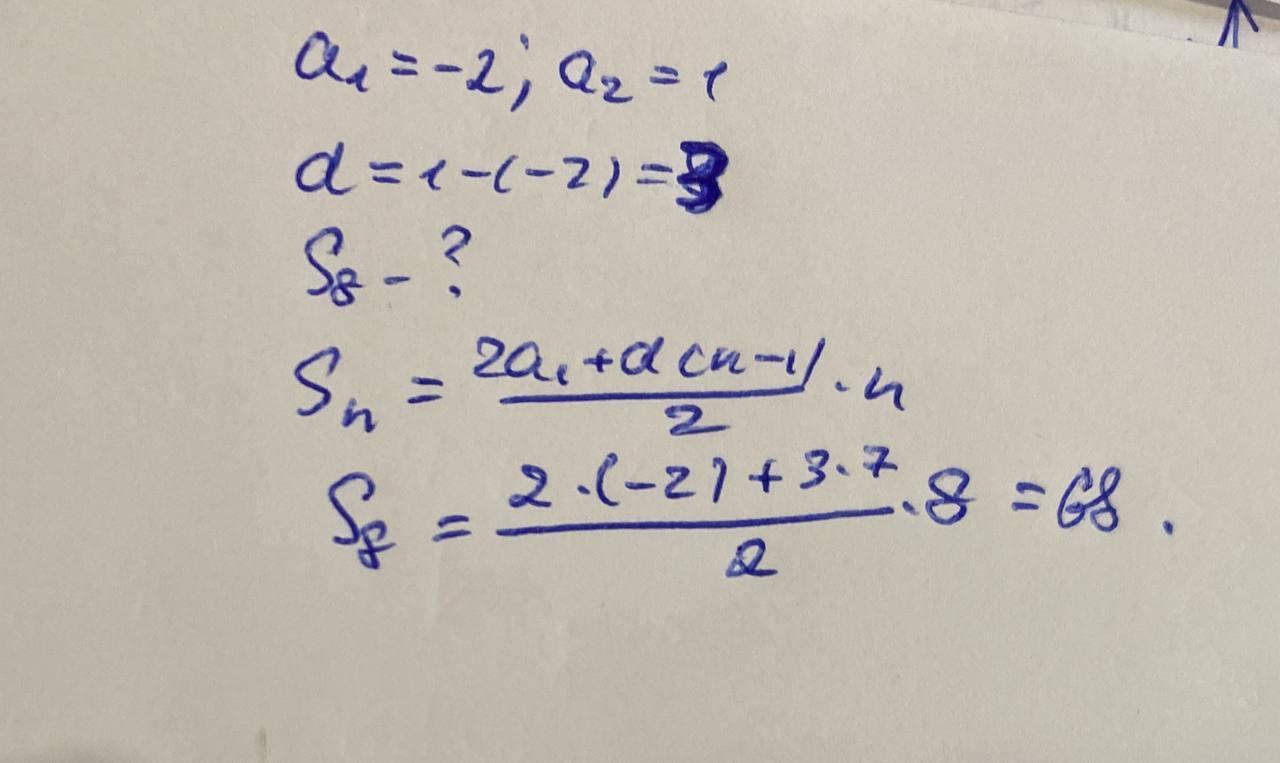 a₁ = -2; a₂ = 1
d = 1 - (-2) = 3
S₈ - ?
Sₙ = (2a₁ + d(n-1))/2 · n
S₈ = (2 · (-2) + 3 · 7)/2 · 8 = 68.